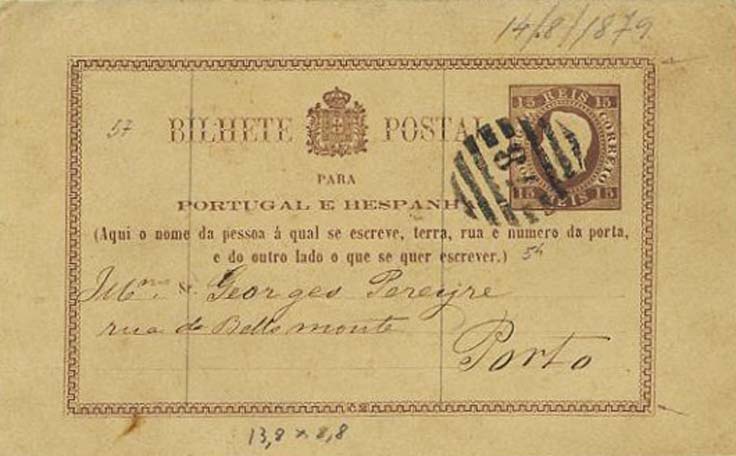 14/8/1879
15 REIS 15
CORREIO
57
BILHETE POSTAL
PARA
PORTUGAL E HESPANHA
(Aqui o nome da pessoa á qual se escreve, terra, rua e numero da porta,
e do outro lado o que se quer escrever.) 54
Georges Pereyre
rua de Bello monte
Porto
15 REIS 15
13,8 x 8,8